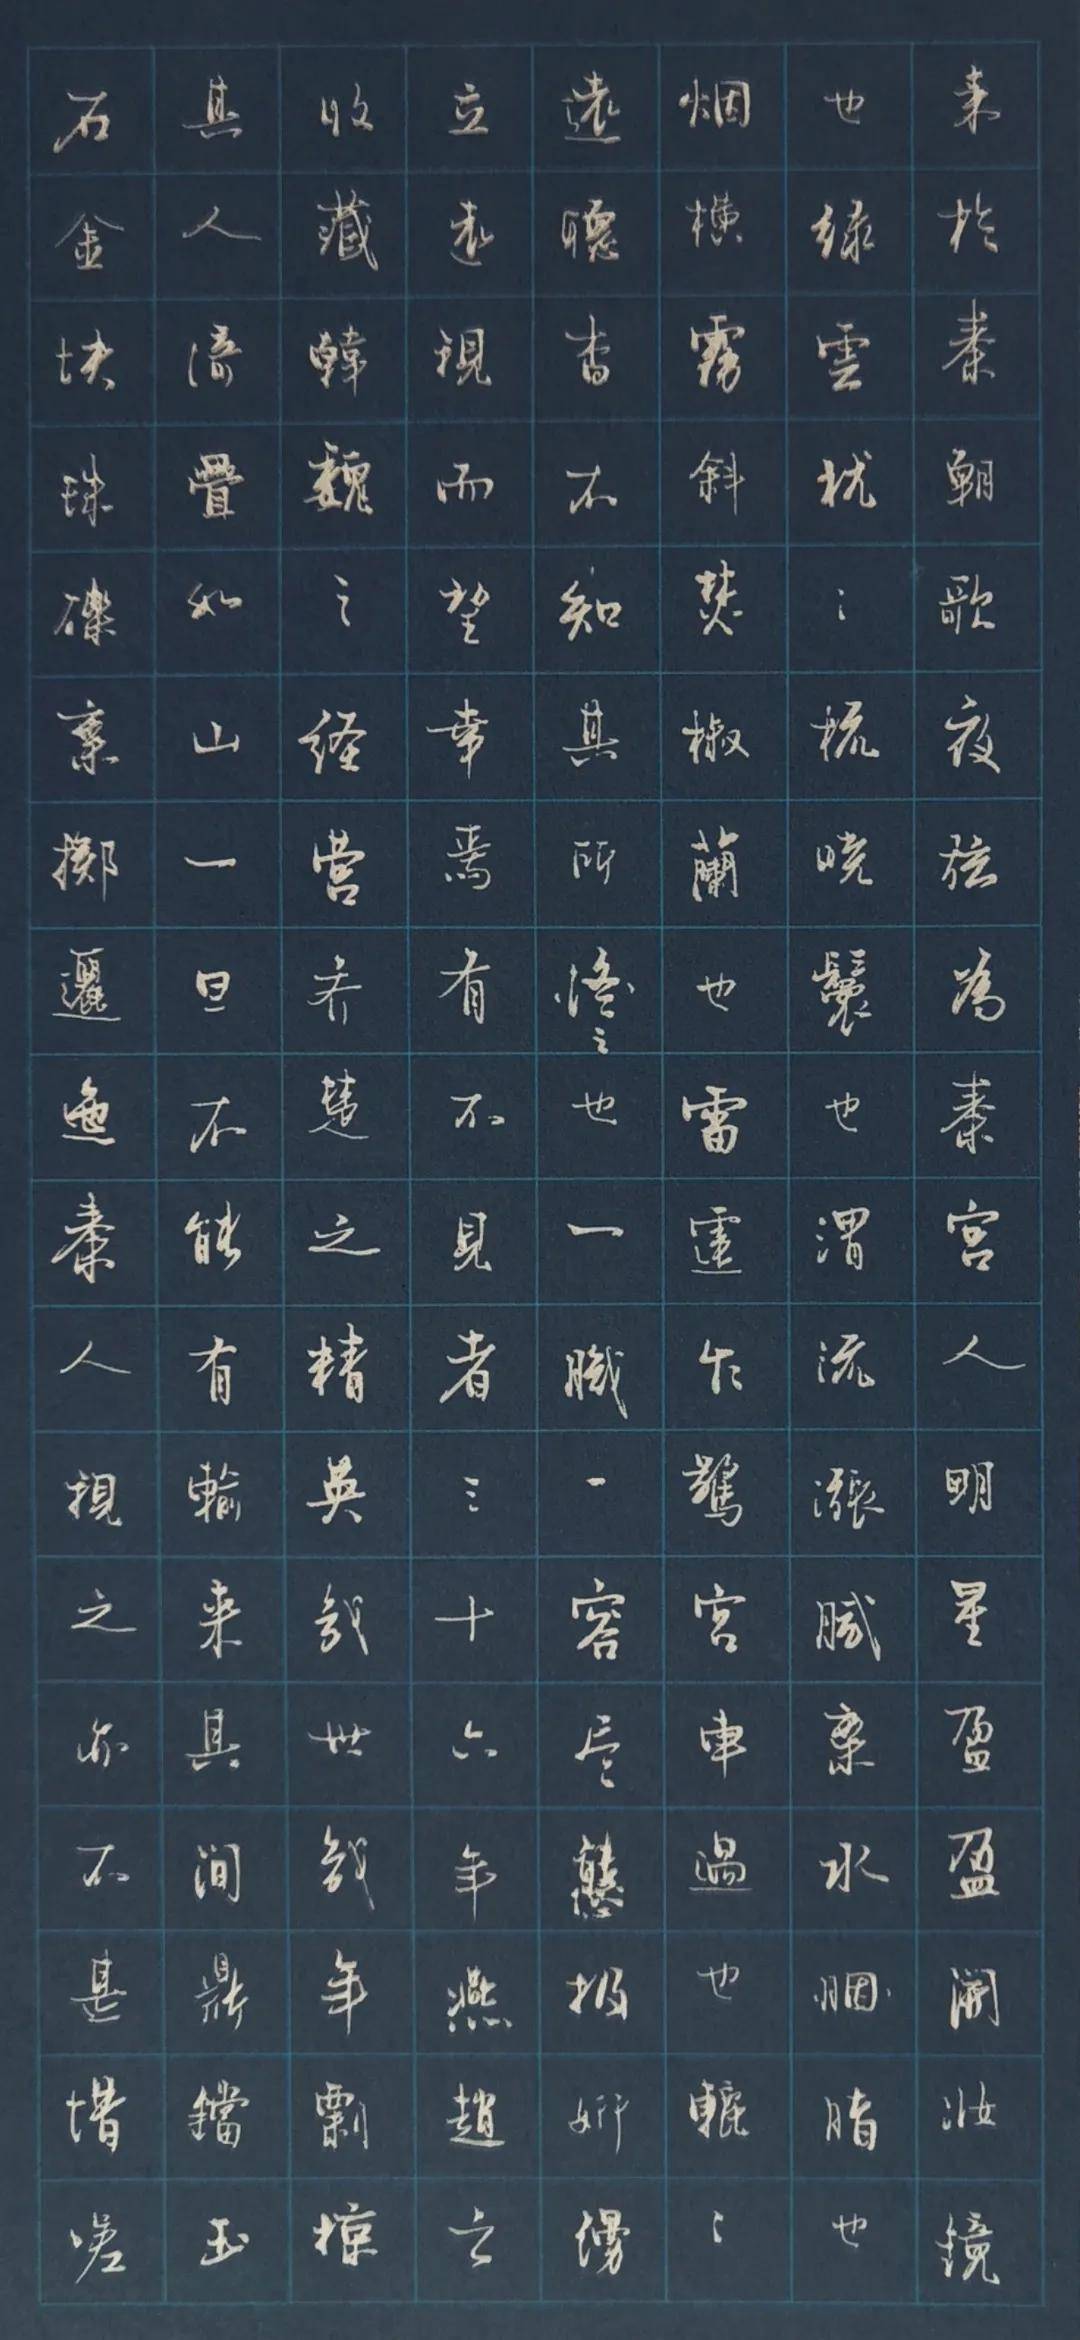 来於秦朝歌夜弦為秦宮人明星盈盈開妝鏡
也绿雲扰〻梳曉鬟也渭流漲膩棄水胭脂也
烟橫霧斜焚椒蘭也雷霆乍驚宮車過也轆〻
遠聽杳不知其所之也一肌一容尽態極妍縵
立遠視而望幸焉有不見者三十六年燕趙之
收藏韓魏之经营齐楚之精英幾世幾年剽掠
其人倚疊如山一旦不能有輸来其間鼎鐺玉
石金块珠礫棄擲邐迤秦人視之亦不甚惜嗟